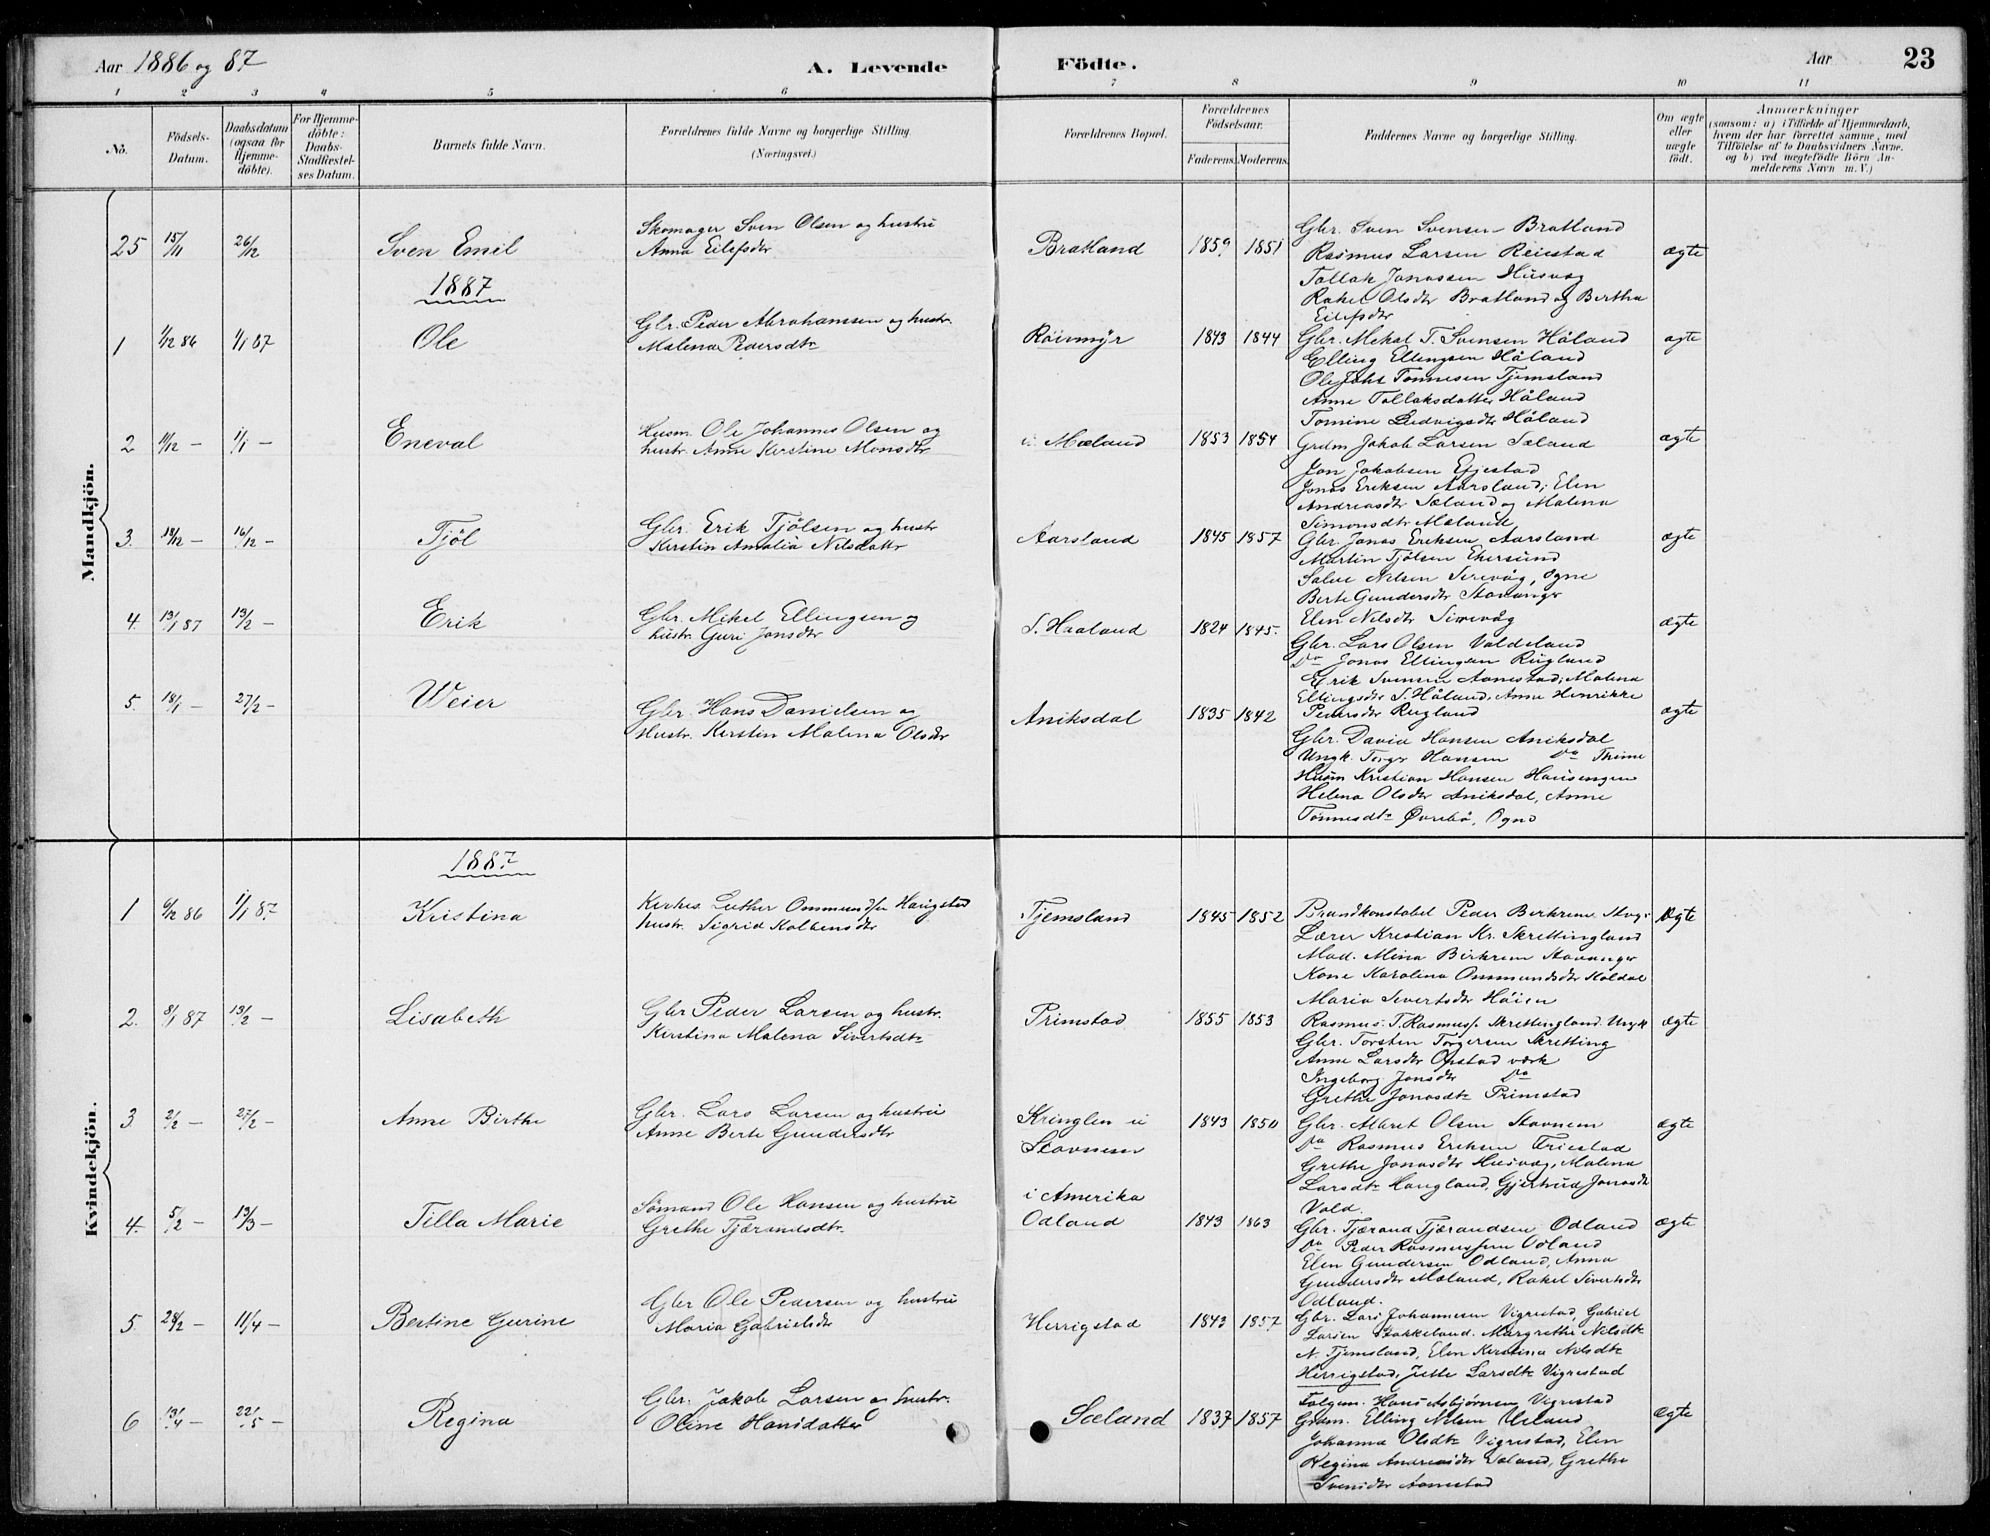 Aar 1886 og 87.
A. Levende Födte.
Aar
23
1 2 3 4 5 6 7 8 9 10 11
No.
Födsels-Datum.
Daabsdatum (ogsaa for Hjemmedöbte).
For Hjemmedöbte: Daabs-Stadfæstelses Datum.
Barnets fulde Navn.
Forældrenes fulde Navne og borgerlige Stilling. (Næringsvei.)
Forældrenes Bopæl.
Forældrenes Födselsaar.
Faderens. Moderens.
Faddernes Navne og borgerlige Stilling.
Om ægte eller uægte födt.
Anmærkninger
(saasom: a) i Tilfælde af Hjemmedaab, hvem der har forrettet samme, med Tilföielse af to Daabsvidners Navne. og b) ved uægtefödte Börn Anmelderens Navn m. V.)
Mandkjön.
25 15/11 26/12 Sven Emil
Skomager Sven Olsen og hustrü
Anna Eilefsdtr
Bratland 1859 1851
Gbr. Sven Svensen Bratland
Rasmus Larsen Reiestad
Tollak Jonassen Husvæg
Rakel Olsdtr Bratland og Bertha
Eilefsdtr
ægte
1887
1 1/12 86 1/1 87 Ole
Gbr. Peder Abrahamsen og hustr.
Malena Pedersdtr
Röinmyr 1843 1844
Gbr. Mekal T. Svensen Håland
Elling Ellingsen Håland
Ole Johs Tønnesen Tjemsland
Anne Tollaksdatter Håland
Tomine Ludvigsdtr Håland
ægte
2 11/12 — 1/1 — Eneval
Husm. Ole Johannes Olsen og
hustr. Anne Kerstine Monsdtr
i Mæland 1853 1854
Grdm Jakob Larsen Sæland
Jon Jakobsen Efjestad
Jonas Eriksen Aarsland; Elen
Andreasdtr Sæland og Malena
Simonsdtr Mæland
ægte
3. 18/12 — 16/12 — Tjøl
Gbr. Erik Tjølsen og hustr
Kerstin Amalia Nilsdattr
Aarsland 1845 1857
Gbr. Jonas Eriksen Aarsland
Martin Tjølsen Ekersund
Salve Nilsen Sirevåg, Ogne
Berte Gundersdtr Stavanger
Elen Nilsdtr Sirevåg
ægte
4. 13/1 87 13/2 — Erik
Gbr. Mikel Ellingsen og
hustr. Guri Jonsdtr
S. Haaland 1824 1845.
Gbr. Lars Olsen Valdeland
Do Jonas Ellingsen Rugland
Erik Svensen Aanestad; Malena
Ellingsdtr S. Håland, Anne Henrikke
Pedersdtr Rugland
ægte
5. 18/1 — 27/2 — Weier
Gbr. Hans Danielsen og
Hustr. Kerstin Malena Olsdtr
Aniksdal 1835 1842
Gbr. David Hansen Aniksdal
Ungk. Torger Hansen Do Thime
Husm Kristian Hansen
Helena Olsdtr Aniksdal, Anne
Tønnesdtr Øvrebø, Ogne
ægte
Kvindekjön.
1887
1 6/12 86 1/1 87. Kristina
Kirkes. Luther Ommundsen Haugstad
hustr. Sigrid Kolbensdtr
Tjemsland 1845 1852
Brandkonstabel Peder Berkrem Stvgr
Lærer Kristian Kr. Skrettingland
Mad. Mina Birkrem Stavanger
Kone Karolina Ommundsdtr Koldal
Maria Sivertsdtr Høien
Ægte
2. 8/1 87 13/2 — Lisabeth
Gbr Peder Larsen og hustr.
Kerstina Malena Sivertsdtr
Primstad 1855 1853
Rasmus T. Rasmuss. Skrettingland. Ungk
Gbr. Torsten Torgersen Skretting
Anne Larsdtr Opstad værk
Ingeborg Jonsdtr Do
Grethe Jonasdtr Primstad
ægte
3 2/2 — 27/2 — Anne Birthe
Gbr. Lars Larsen og hustrü
Anne Berte Gundersdtr
Kringlen i
Stavnem
1843 1850
Gbr. Albret Olsen Stavnem
Do Rasmus Eriksen Friestad
Grethe Jonasdtr Husvæg, Malena
Larsdtr Haugland, Gjertrud Jonasdtr
Vold.
ægte
4. 5/2 — 13/3 — Tilla Marie
Sømand Ole Hansen og hustrü
Grethe Tjærandsdtr.
i Amerika
Odland
1843 1863
Gbr. Tjærand Tjærandsen Odland
Do Peder Rasmussen Odland
Elen Gundersen Odland, Anna
Gundersdtr Mæland, Rakel Sivertsdtr
Odland.
ægte
5. 28/2 — 11/4 — Bertine Gurine
Gbr Ole Pedersen og hustrü
Maria Gabrielsdtr
Herrigstad 1843 1857
Gbr. Lars Johannesen Vigrestad, Gabriel
Larsen Stokkeland. Margrethe Nilsdtr
N. Tjemsland, Elen Kerstina Nilsdtr
Herrigstad, Jette Larsdtr Vigrestad
ægte
6 13/4 — 22/5 — Regina
Gbr. Jakob Larsen og hustr.
Oline Hansdatter
Sæland 1837 1857
Folgem. Hans Asbjørnsen Vigrestad
Grdm. Elling Nilsen Ueland
Johanna Olsdtr Vigrestad, Elen
Regina Andreasdtr Sæland, Grethe
Svensdtr Aanestad
Ægte